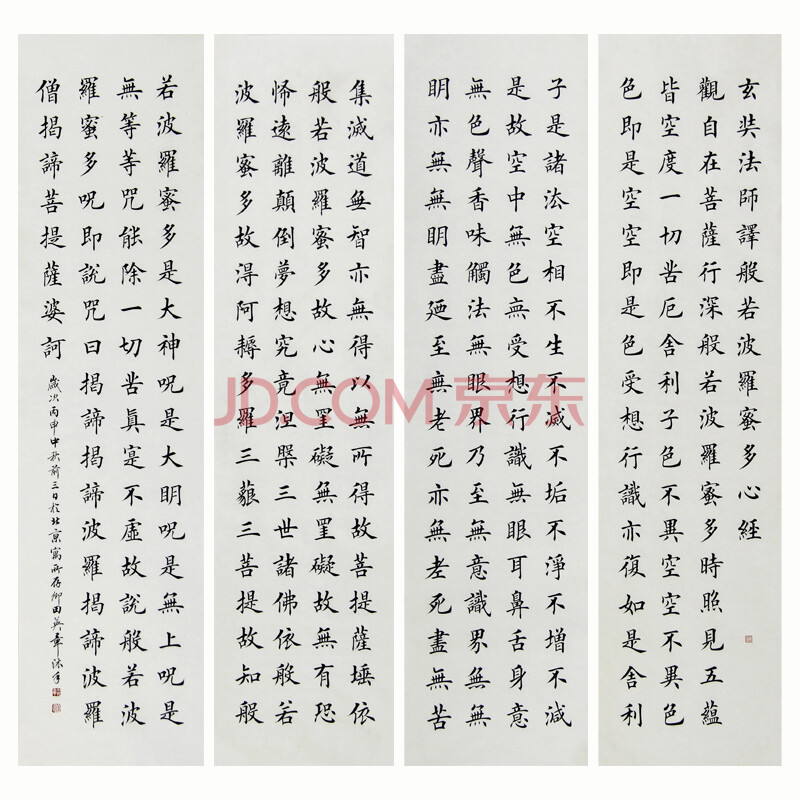 玄奘法師譯般若波羅蜜多心經
觀自在菩薩行深般若波羅蜜多時照見五蘊
皆空度一切苦厄舍利子色不異空空不異色
色即是空空即是色受想行識亦復如是舍利
子是諸法空相不生不滅不垢不淨不增不減
是故空中無色無受想行識無眼耳鼻舌身意
無色聲香味觸法無眼界乃至無意識界無無
眀亦無無眀盡廼至無老死亦無老死盡無苦
集滅道無智亦無得以無所得故菩提薩埵依
般若波羅蜜多故心無罣礙無罣礙故無有恐
怖遠離顛倒夢想究竟涅槃三世諸佛依般若
波羅蜜多故得阿耨多羅三藐三菩提故知般
若波羅蜜多是大神呪是大明呪是無上呪是
無等等咒能除一切苦真寔不虛故說般若波
羅蜜多呪即說咒曰揭諦揭諦波羅揭諦波羅
僧揭諦菩提薩婆訶
歲次丙申中秋前三日於北京寓所存卿田英章沐手
JD.COM 京东